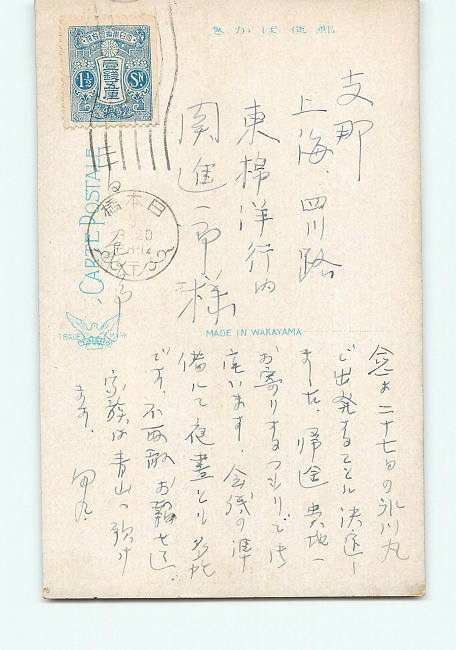 郵便はかき
CARTE POSTALE
支那
上海、四川路
東棉洋行内
関進一郎様
日本橋
TRADE
MADE IN WAKAYAMA
1½
Sn
壹錢五厘
念々二十七日の氷川丸
で出発することに決定し
ました、帰途貴地へ
お寄りするつもりで御
座います。会議の準
備にて夜晝とも多忙
です、不取敢お報せ迄
家族は青山へ預け
ます、